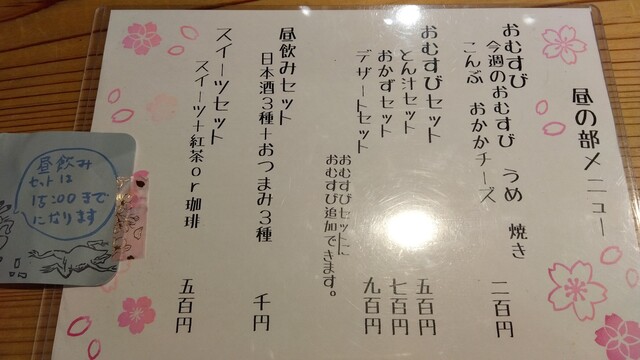 昼の部メニュー
おむすび
今週のおむすび うめ 焼き
こんぶ おかかチーズ 二百円
おむすびセット
とん汁セット 五百円
おかずセット 七百円
デザートセット 九百円
おむすびセットに
おむすび追加できます。
昼飲みセット
日本酒3種+おつまみ3種 千円
スイーツセット
スイーツ+紅茶or珈琲 五百円
昼飲み
セットは
15:00まで
になります